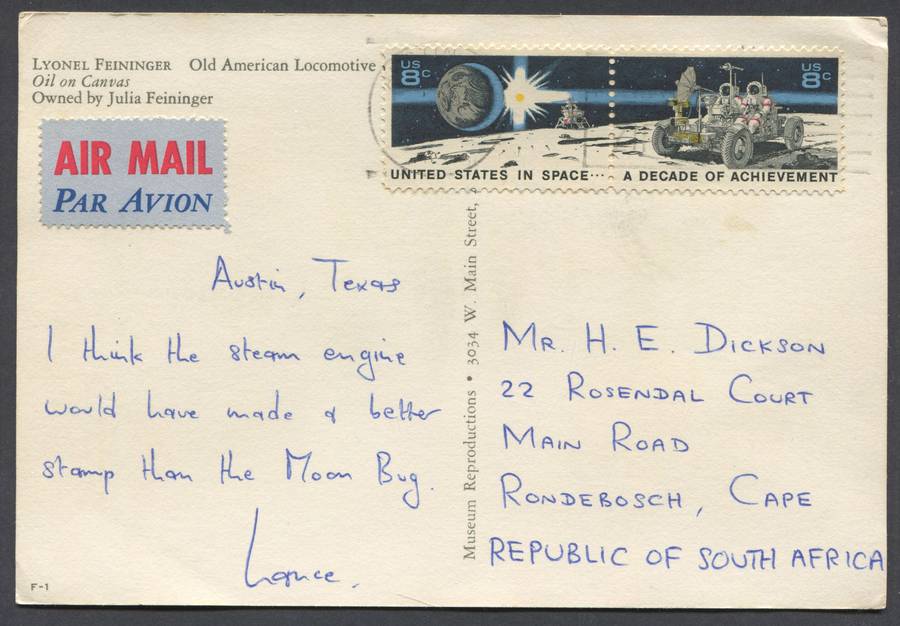 LYONEL FEININGER Old American Locomotive
Oil on Canvas
Owned by Julia Feininger
AIR MAIL
PAR AVION
US 8c
US 8c
UNITED STATES IN SPACE··· A DECADE OF ACHIEVEMENT
Austin, Texas
I think the steam engine
would have made a better
stamp than the Moon Bug.
Lance.
Museum Reproductions • 3034 W. Main Street,
MR. H. E. DICKSON
22 ROSENDAL COURT
MAIN ROAD
RONDEBOSCH, CAPE
REPUBLIC OF SOUTH AFRICA
F-1